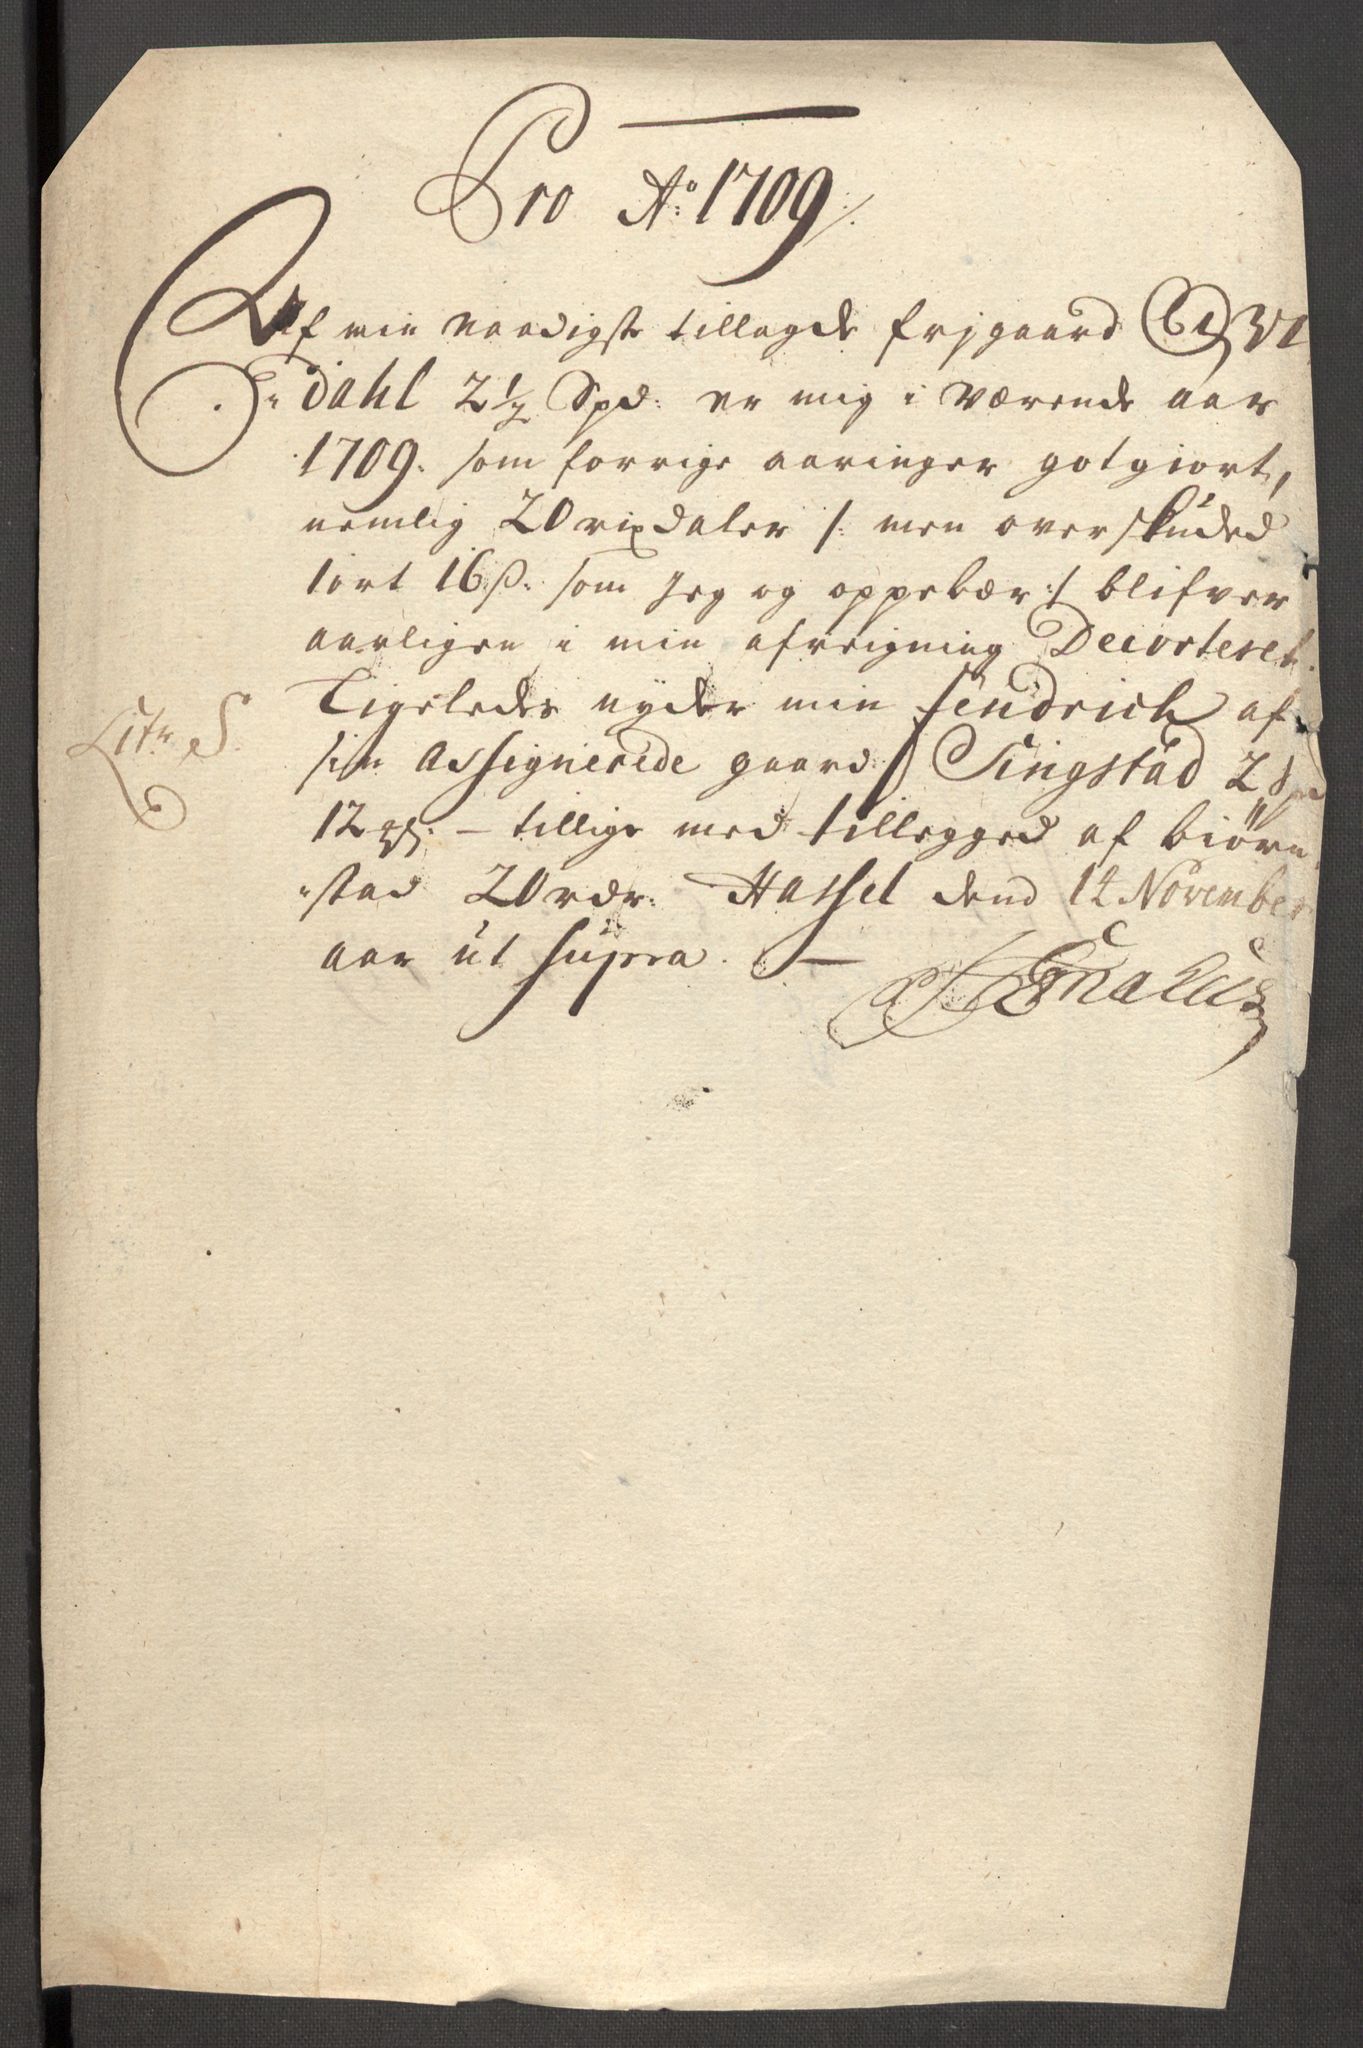 Pro Ao: 1709
Af min naadigste tillagde frjgaard
dahl 2 1/2 Spd: er mig i værende aar
1709. som forrige aaringer gotgiort,
nemlig 20 rixdaler /: men overskuded
1 ort 16 ß: som jeg og oppebær :/ blifver
aarligen i min afreigning Decorteret.
Ligeledes nyder min fendrich af
Litr S.
sin assignerede gaard Singstad 2 Spd
12 - tillige med tillegged af biørn
stad 20 rdr. Hassel dend 14 November
aar ut supra. -